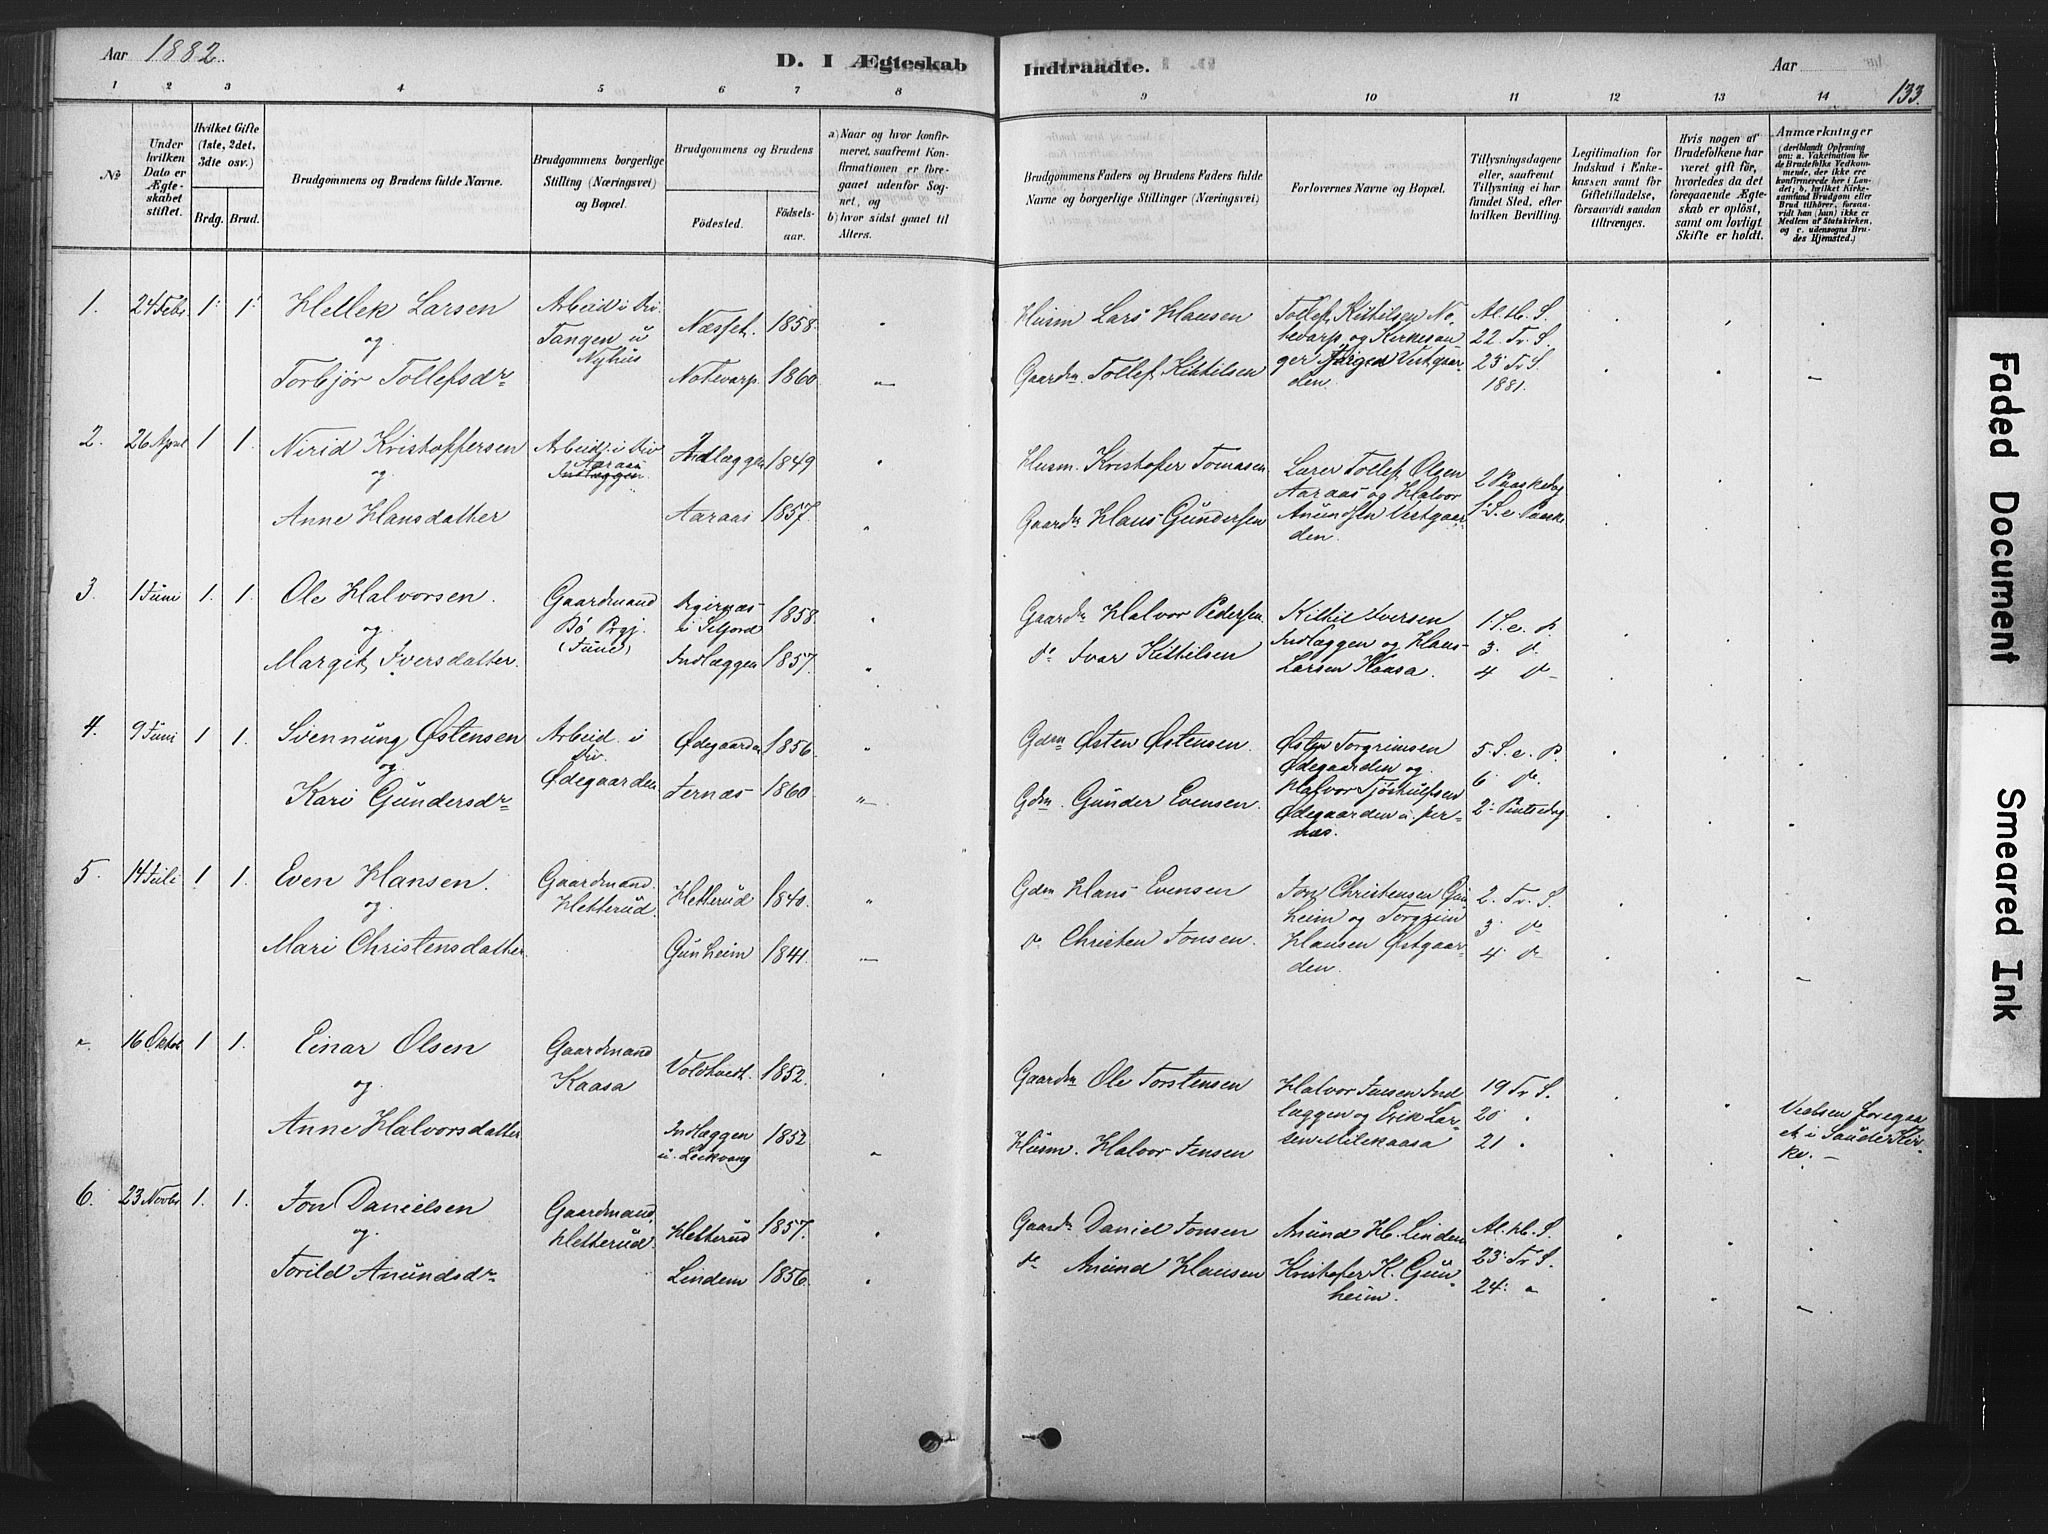 Aar 1882.
D. I Ægteskab
Indtraadte.
Aar
133.
1 2 3 4 5 6 7 8
9 10 11 12 13 14
No
Under hvilken Dato er Ægteskabet stiftet.
Hvilket Gifte (1ste, 2det, 3dte osv.)
Brdg. Brud.
Brudgommens og Brudens fulde Navne.
Brudgommens borgerlige Stilling (Næringsvei) og Bopæl.
Brudgommens og Brudens
Fødested.
Fødselsaar.
a) Naar og hvor konfirmeret, saafremt Konfirmationen er foregaaet udenfor Sognet, og
b) hvor sidst gaaet til Alters.
Brudgommens Faders og Brudens Faders fulde Navne og borgerlige Stillinger (Næringsvei)
Forlovernes Navne og Bopæl.
Tillysningsdagene eller, saafremt Tillysning ei har fundet Sted, efter hvilken Bevilling.
Legitimation for Indskud i Enkekassen samt for Giftetilladelse, forsaavidt saadan tiltrænges.
Hvis nogen af Brudefolkene har været gift før, hvorledes da det foregaaende Ægteskab er opløst, samt om lovligt Skifte er holdt.
Anmærkninger
(deriblandt Oplysning om: a. Vakcination for de Brudefolks Vedkommende, der ikke ere konfirmerede her i Landet; b. hvilket Kirkesamfund Brudgom eller Brud tilhører, forsaavidt han (hun) ikke er Medlem af Statskirken, og c. udensogns Brudes Hjemsted.)
1. 24 Febr 1. 1. Hellek Larsen
og
Torbjør Tollefsdr
Arbeid i Div.
Tangen u
Nyhus
Næsset. 1858.
Notevarp 1860
Husm Lars Hansen
Gaardm Tollef Kittilsen
Tollef Kittilsen No-
tevarp og Kirkesan-
ger Jørgen Vestgaar-
den.
Al. H. S.
22. Tr. S.
23 Tr S.
1881.
2. 26 April 1 1. Nirid Kristoffersen
og
Anne Hansdatter
Arbeid i Div
Aaraas
Indlæggen
Indlæggen 1849
Aaraas 1857.
Husm. Kristofer Tomasen
Gaardm Hans Gundersen
Lærer Tollef Olsen
Aaraas og Halvor
Anundsen Vestgaar-
den.
2 Paaskedag
1. S. e Paaske
3. 1 Juni 1. 1. Ole Halvorsen.
og
Margit Iversdatter.
Gaardmand
Bø Prgj.
i Seljord 1858.
Indlæggen 1857.
Gaardm Halvor Pedersen
do Ivar Kittilsen
Kittil Iversen
Indlæggen og Hans
Larsen Kaasa.
1. S. e. P.
3. do
4 do
4. 9 Juni 1 1. Svennung Østensen
og
Kari Gundersdr
Arbeid. i
Div.
Ødegaarden
Ødegaarden 1856.
Jernæs 1860
Gdm Østen Østensen.
Gdm. Gunder Evensen.
Østen Torgrimsen
Ødegaarden og
Halvor Tjøstulfsen
Ødegaarden u. Jer-
næs.
5. S. e. P.
6 do
2. Pintsedag
5. 14 Juli 1 1. Even Hansen.
og
Mari Christensdatter
Gaardmand.
Hetterud.
Hetterud 1840.
Gunheim 1841.
Gdm Hans Evensen
do Christen Jonsen.
Jon Christensen Gun-
heim og Torgrim
Hansen Østgaar-
den.
2. Tr. S.
3 do
4. do
16 Oktbr 1 1. Einar Olsen
og
Anne Halvorsdatter
Gaardmand
Kaasa
Voldtveit. 1852.
Indlæggen 1852
u. Leikvang
Gaardm Ole Torstensen
Husm. Halvor Jensen
Halvor Jensen Ind-
læggen og Erik Lar-
sen Milekaasa
19 Tr S.
20
21
Vielsen foregaa-
et i Saude Kir-
ke.
6. 23 Novbr 1. 1. Jon Danielsen
og
Torild Anundsdr
Gaardmand.
Hetterud.
Hetterud 1857.
Lindem 1856.
Gaardm Daniel Jonsen
do Anund Hansen
Anund H. Lindem
Kristofer H. Gun-
heim.
Al. H. S.
23. Tr S.
24.
Faded Document
Smeared Ink